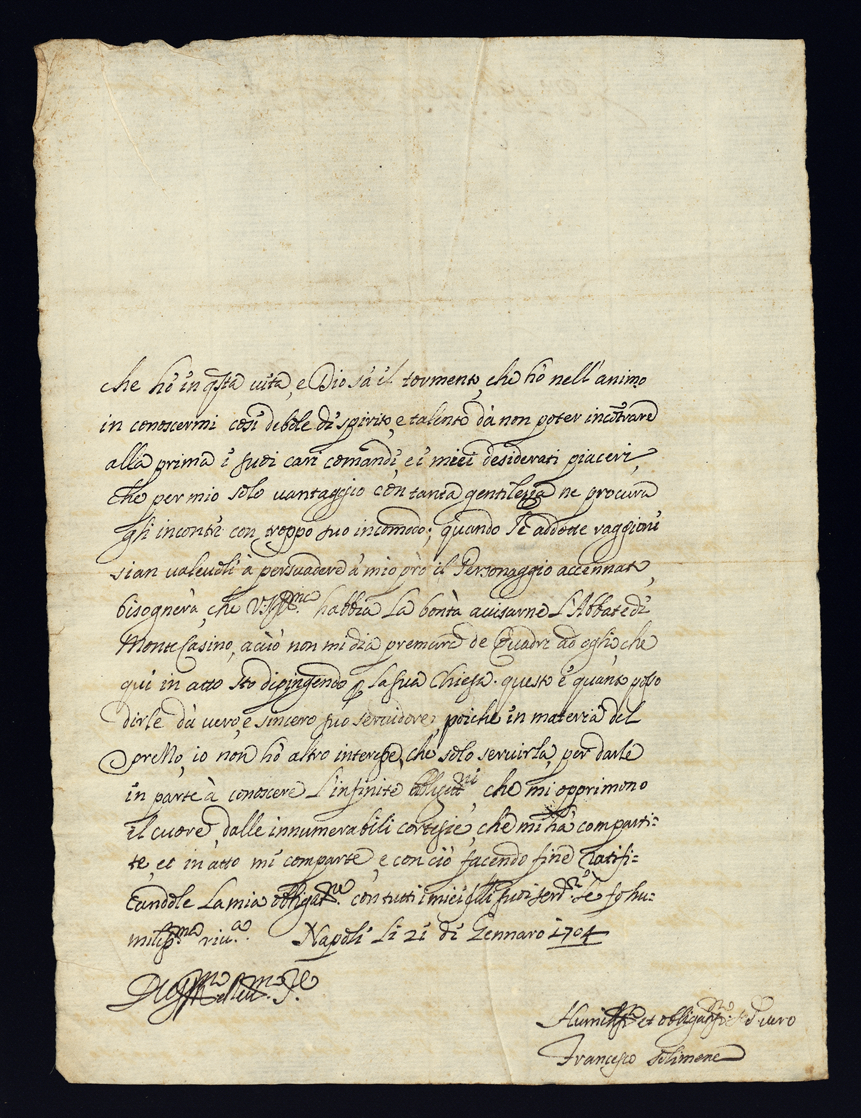 che hò in qsta vita, e Dio sà il tormento, che hò nell'animo
in conoscermi così debole di spirito, e talento dà non poter incõtrare
alla prima i suoi cari comandi, e i miei desiderati piaceri,
che per mio solo vantaggio con tanta gentilezza ne procura
gli incontri con troppo suo incomodo; quando le addotte raggioni
sian valevoli à persuadere à mio prò il Personaggio accennato,
bisognerà, che V.S. Ill.ma habbia la bontà avisarne l'Abbate di
Monte Casino, acciò non mi dia premura de Quadri ad oglio, che
qui in atto sto dipingendo p la sua Chiesa. questo è quanto posso
dirle da vero, e sincero suo servidore, poiche in materia del
prezzo, io non hò altro interesse, che solo servirla, per darle
in parte à conoscere l'infinite obligat.ni che mi opprimono
il cuore, dalle innumerabili cortesie, che mi hà comparti=
te, et in atto mi comparte, e con ciò facendo fine ratifi=
candole la mia obligat.ne con tutti i miei suoi ser.ri le fò hu=
miliss.ma riv.a Napoli li 21 di Gennaro 1704
Di V.S. Ill.ma
Humiliss.o et obligatiss.o Ser. vero
Francesco Solimena